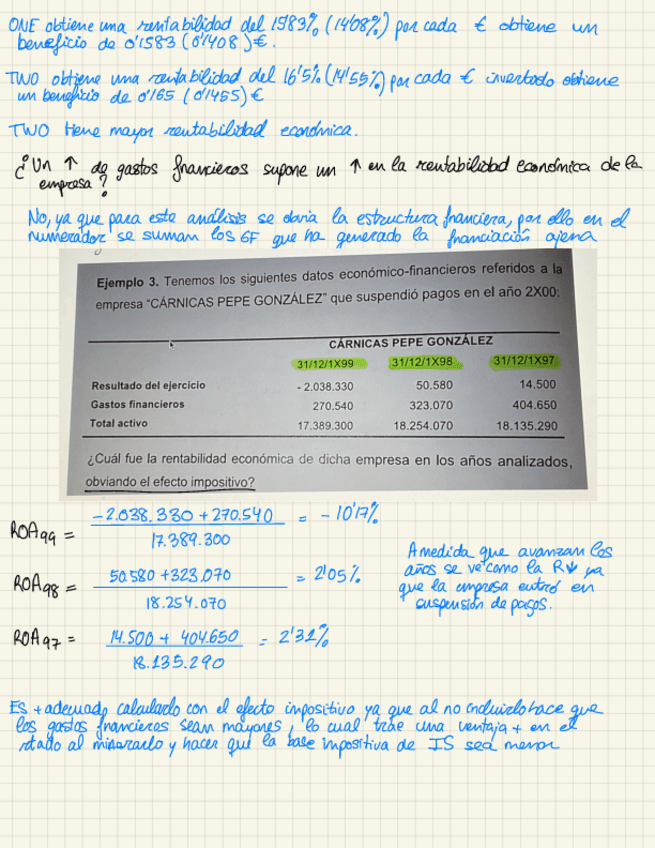 ONE obtiene una rentabilidad del 15'83% (14'08%) por cada € obtiene un
beneficio de 0'1583 (0'1408)€.
TWO obtiene una rentabilidad del 16'5% (14'55%) por cada € invertado obtiene
un beneficio de 0'165 (0'1455)€
TWO tiene mayor rentabilidad económica.
¿Un ↑ de gastos financieros supone un ↑ en la rentabilidad económica de la
empresa?
No, ya que para este análisis se obvia la estructura financiera, por ello en el
numerador se suman los GF que ha generado la financiación ajena
Ejemplo 3. Tenemos los siguientes datos económico-financieros referidos a la
empresa "CÁRNICAS PEPE GONZÁLEZ" que suspendió pagos en el año 2X00:
CÁRNICAS PEPE GONZÁLEZ
31/12/1X99 31/12/1X98 31/12/1X97
Resultado del ejercicio - 2.038.330 50.580 14.500
Gastos financieros 270.540 323.070 404.650
Total activo 17.389.300 18.254.070 18.135.290
¿Cuál fue la rentabilidad económica de dicha empresa en los años analizados,
obviando el efecto impositivo?
-2.038.330 + 270.540
ROA99 = = -10'17%
17.389.300
50.580 + 323.070
ROA98 = = 2'05%
18.254.070
14.500 + 404.650
ROA97 = = 2'31%
18.135.290
A medida que avanzan los
años se ve como la R↓ ya
que la empresa entró en
suspensión de pagos.
Es + adecuado calcularlo con el efecto impositivo ya que al no incluirlo hace que
los gastos financieros sean mayores, lo cual trae una ventaja + en el
rtado al minorarlo y hacer que la base impositiva de IS sea menor